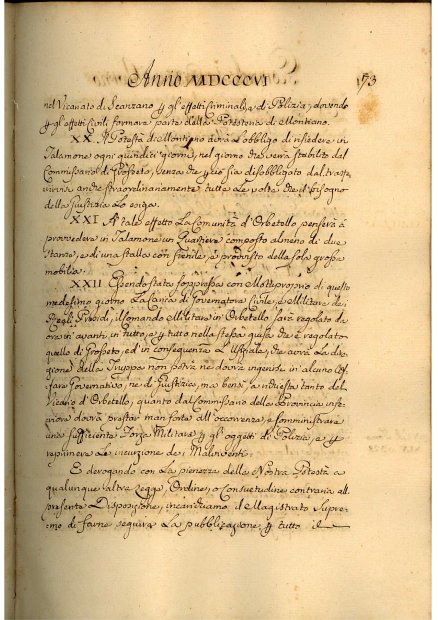 Anno MDCCCVI
73
nel Vicariato di Scanzano p gl'effetti Criminali, e di Polizia, dovendo
p gl'effetti Civili formare parte della Potesteria di Montiano.
XX. Il Potestà di Montiano avrà l'obbligo di risiedere in
Talamone ogni quindici giorni, nel giorno che verrà stabilito dal
Commissario di Grosseto, senza che p ciò sia disobbligato dal trasfe-
rirvisi anche straordinariamente tutte le volte che il bisogno
della Giustizia lo esiga.
XXI A tale effetto la Comunità d'Orbetello penserà a
provvedere in Talamone un Quartiere composto almeno di due
stanze, e di una stalla con fienile, e provvisto della sola grossa
mobilia.
XXII Essendo stata soppressa con Motuproprio di questo
medesimo giorno la Carica di Governatore Civile, e Militare dei
Reali Presidi, il Comando Militare in Orbetello sarà regolato da
ora in avanti in tutto, e p tutto nella stessa guisa che è regolato
quello di Grosseto, ed in conseguenza l'Uffiziale che avrà la dire-
zione della Truppa non potrà, ne dovrà ingerirsi in alcuno Af-
fare Governativo, ne di Giustizia, ma bensì, a richiesta tanto del
Vicario d'Orbetello, quanto dal Commissario della Provincia infe-
riore dovrà prestar man forte all'occorrenza, e somministrare
una sufficiente Forza Militare p gli oggetti di Polizia, e p
reprimere le incursioni dei Malviventi.
E derogando con la pienezza della Nostra Potestà a
qualunque altra Legge, Ordine, o Consuetudine contraria alla
presente Disposizione, incarichiamo il Magistrato Supre-
mo di farne seguire la pubblicazione p tutto il